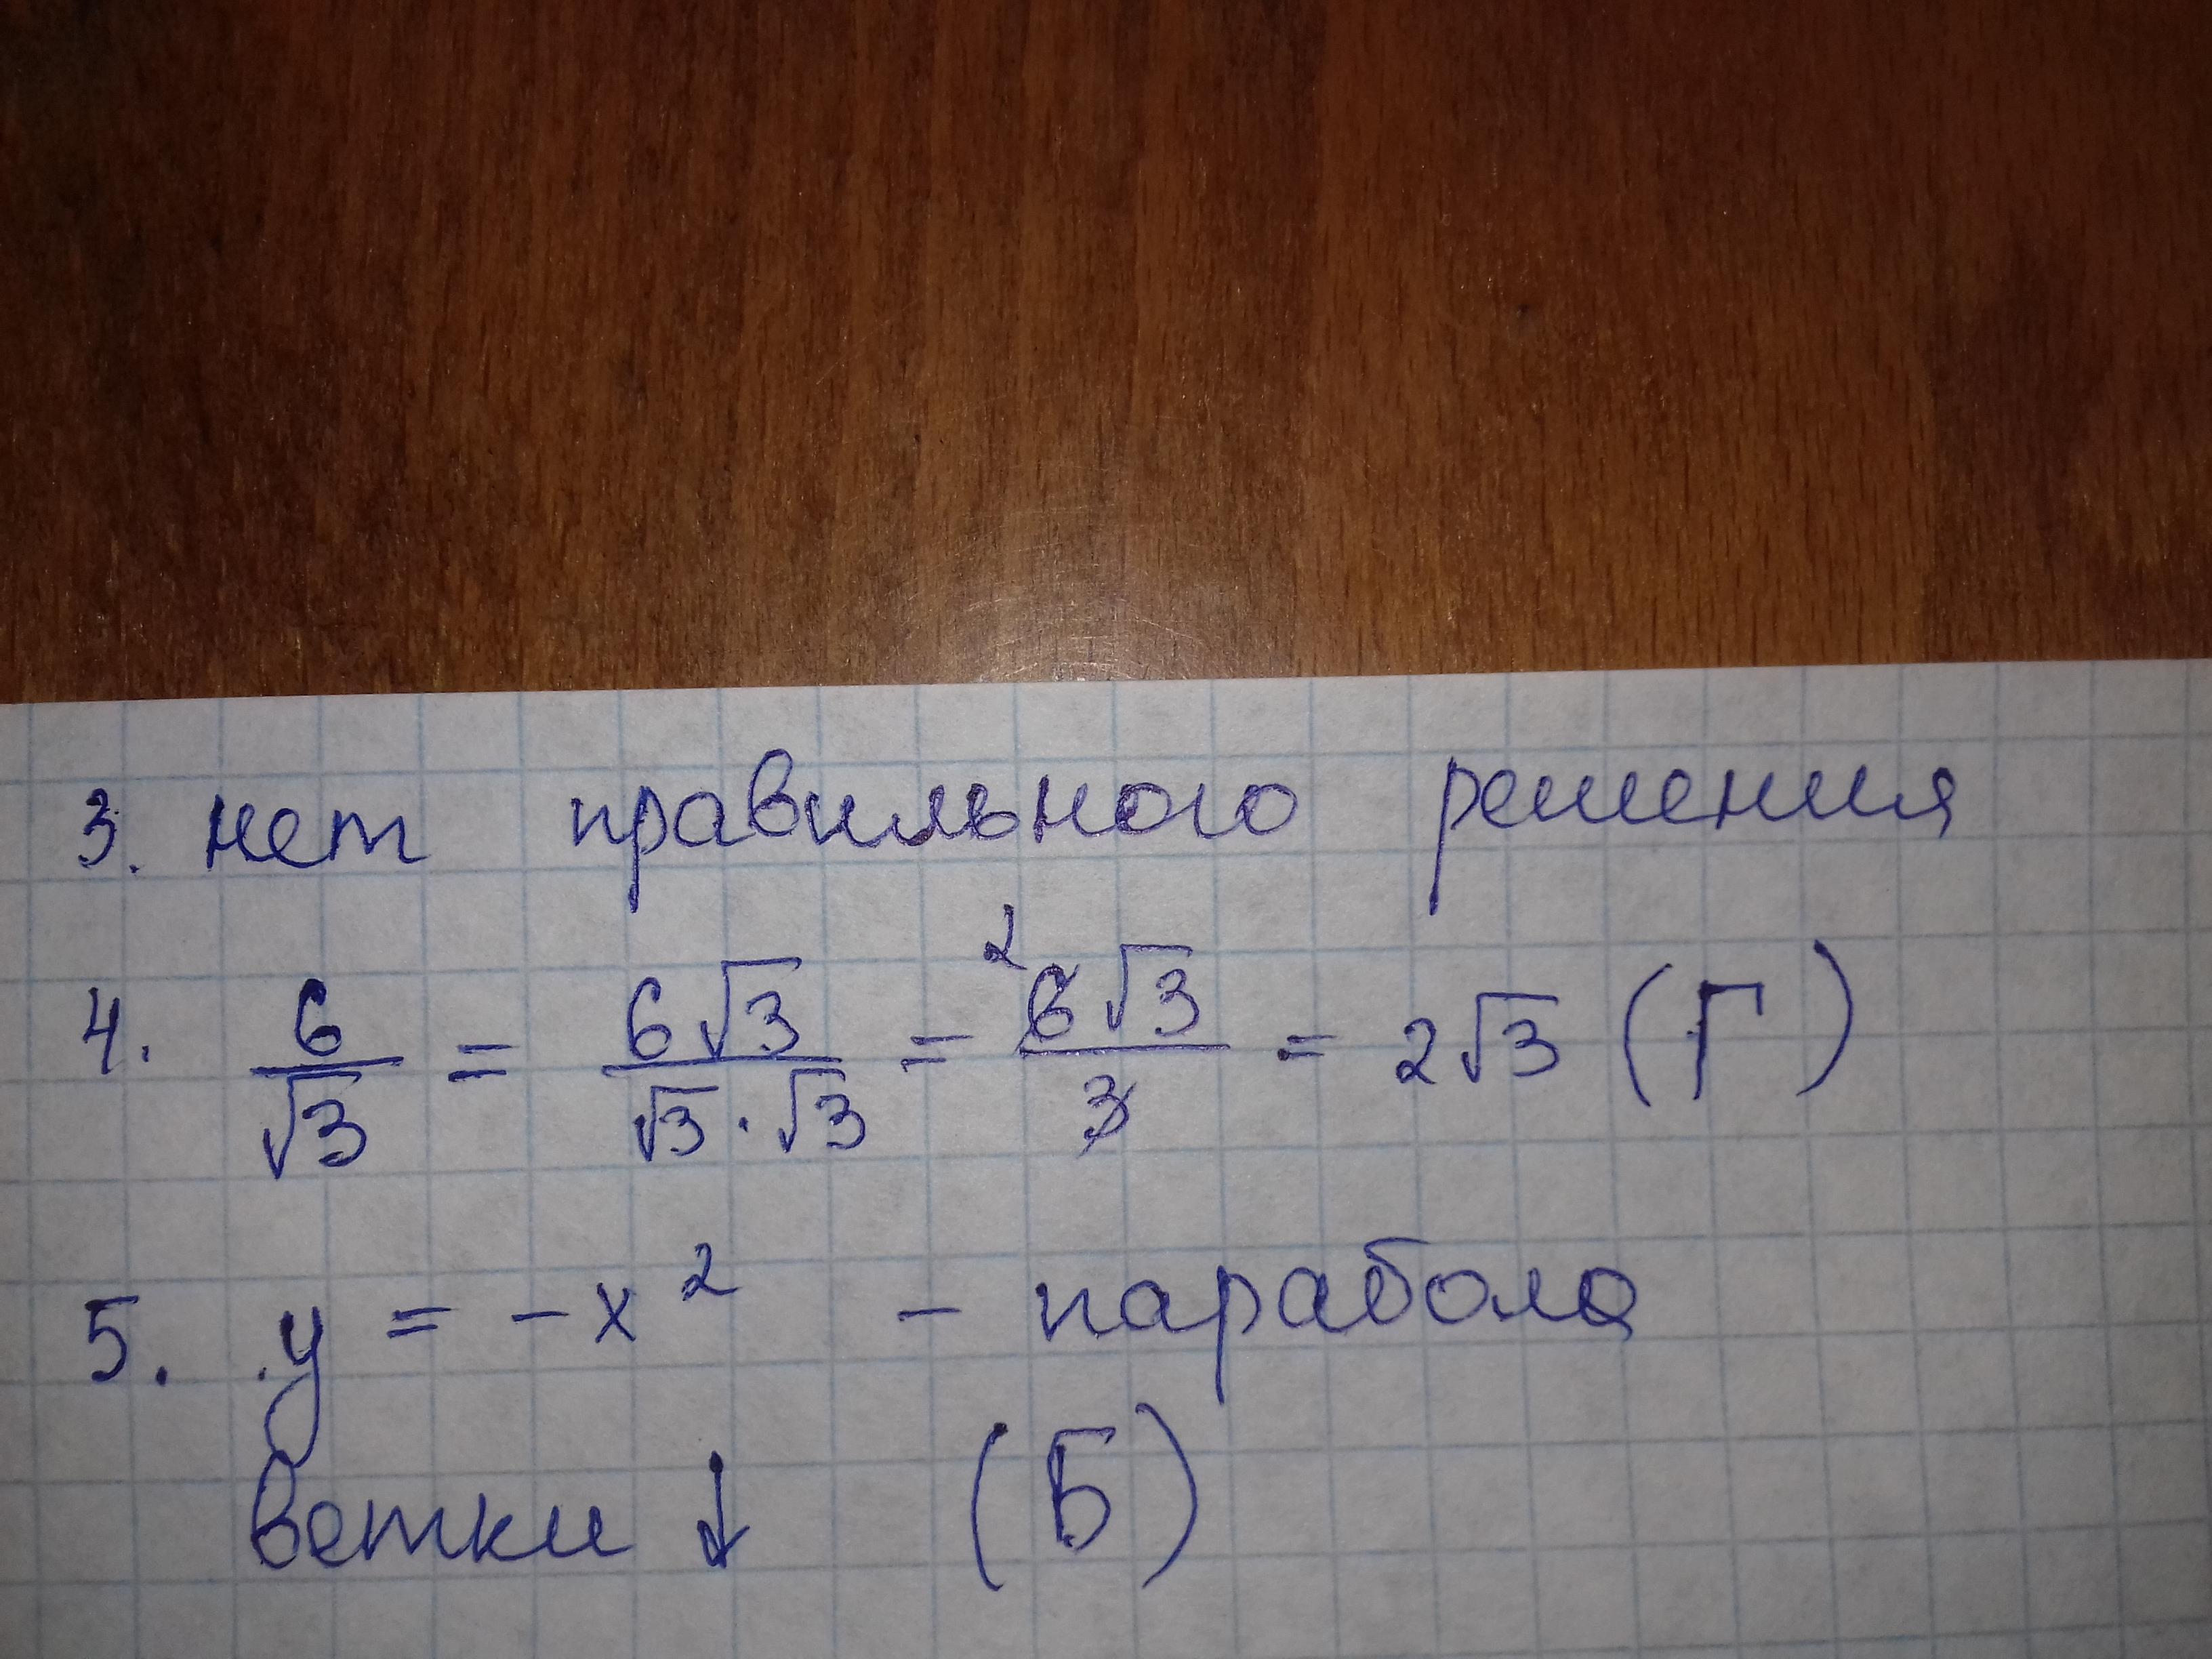 3. нет правильного решения
4. 6/√3 = 6√3/√3·√3 = ²6√3/3 = 2√3 (Г)
5. y = -x² - парабола
ветки ↓ (Б)